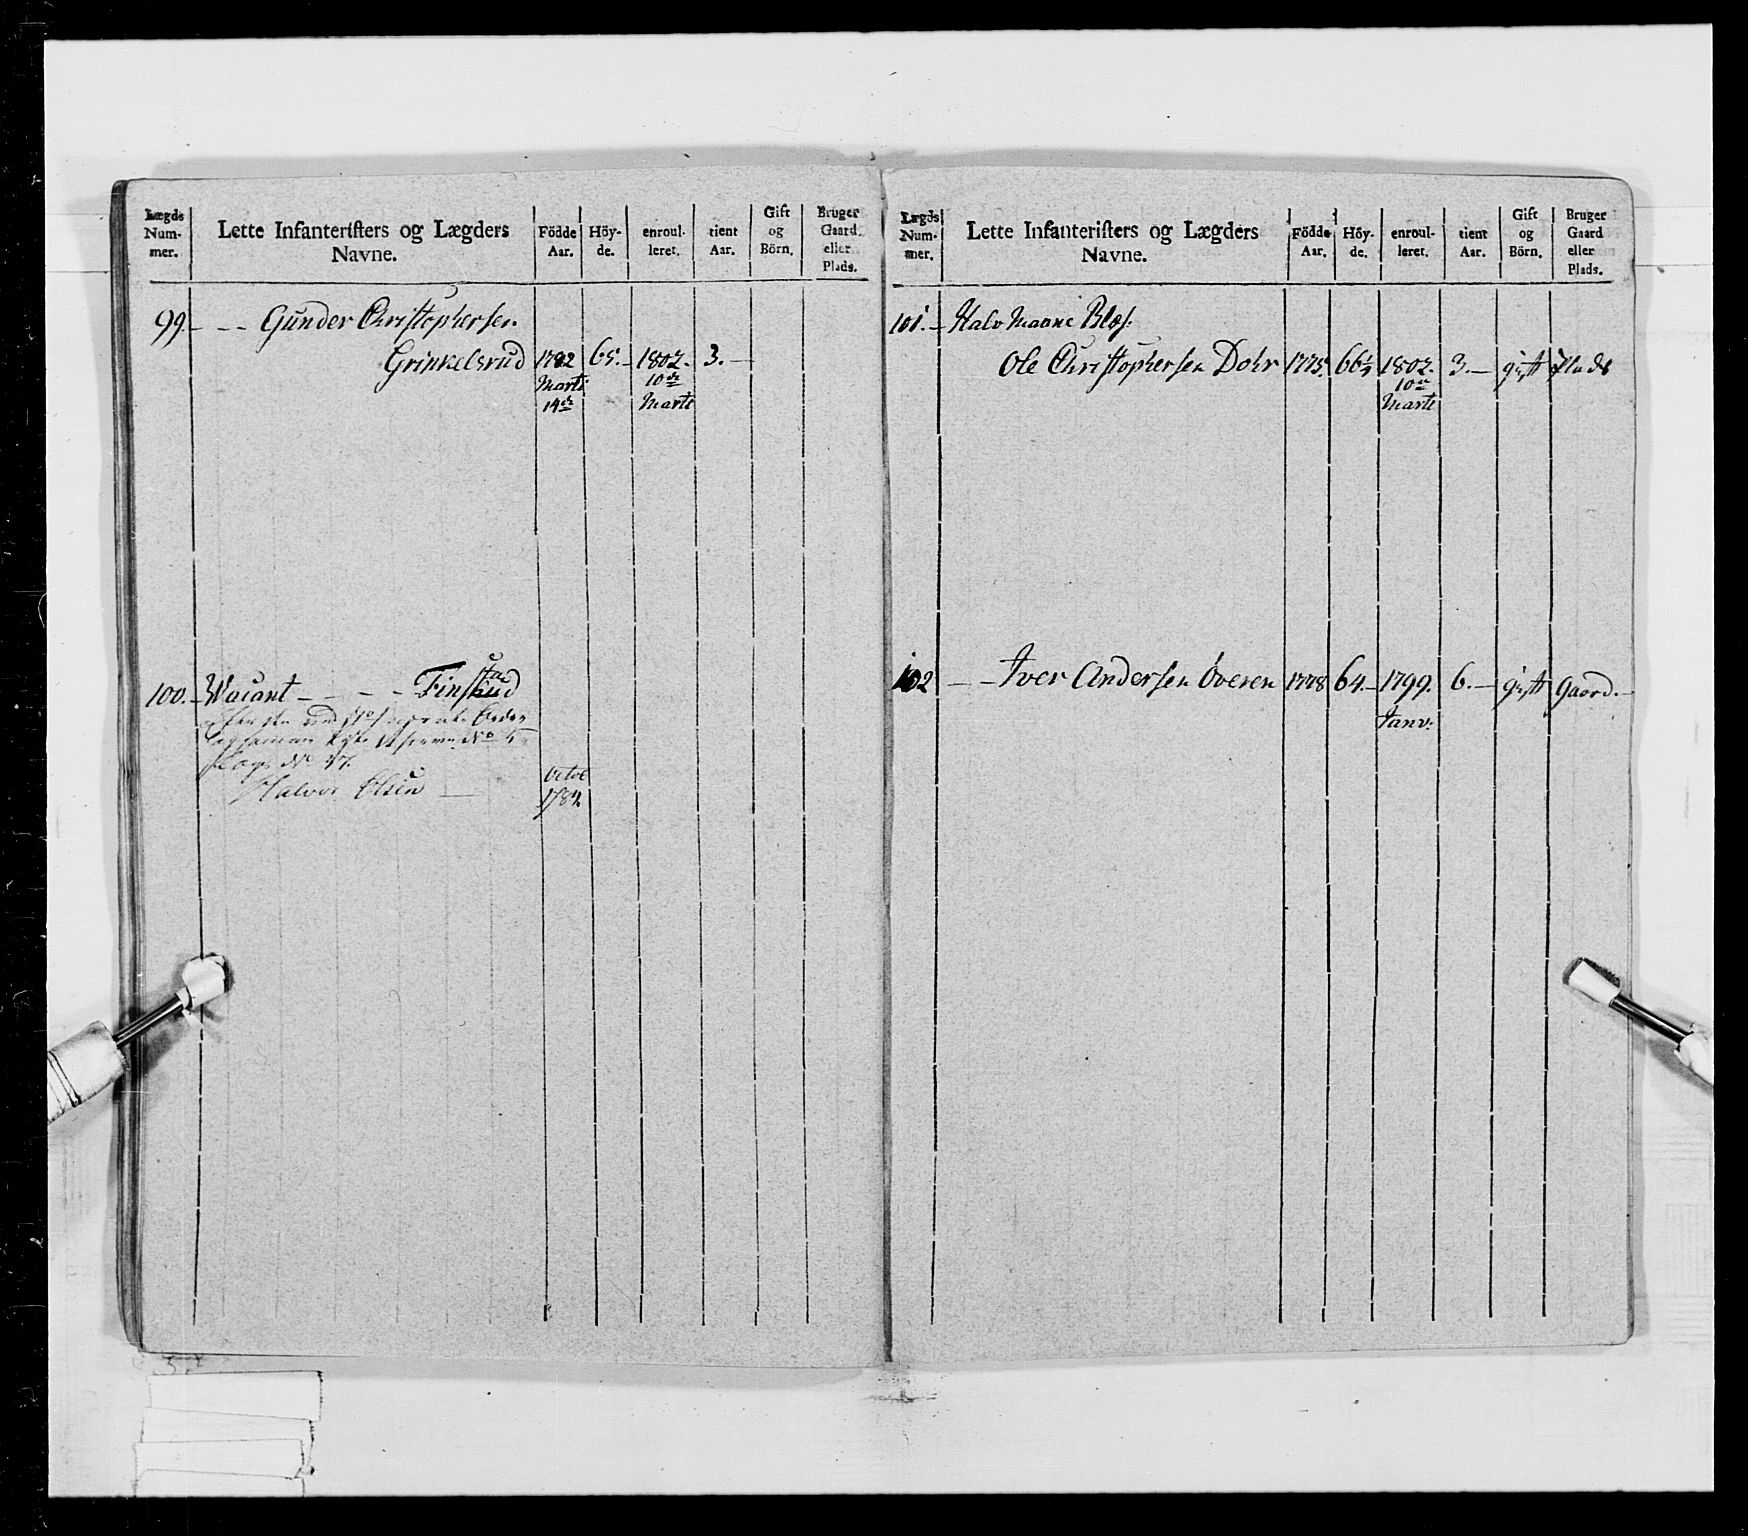 Lægds Num- mer.
Lette Infanteristers og Lægders Navne.
Födde Aar.
Höy- de.
enroul- leret.
tient Aar.
Gift og Börn.
Bruger Gaard eller Plads.
99. - - - Gunder Christophersen
Grinkelsrud 1782 65. - 1802. 3. -
Marti 10de
14de Marti
100. - Wacant - - - - Finstad
Octbr
Halvor Olsen - 1784.
Lægds Num- mer.
Lette Infanteristers og Lægders Navne.
Födde Aar.
Höy- de.
enroul- leret.
tient Aar.
Gift og Börn.
Bruger Gaard eller Plads.
101. - Halv Maane Blæs.
Ole Christophersen Dohr 1775. 66½ 1802. 3. - gift Plads
10de
Marti
102 - - Iver Andersen Overen 1778 64. - 1799. 6. - gift Gaard. -
Janv: